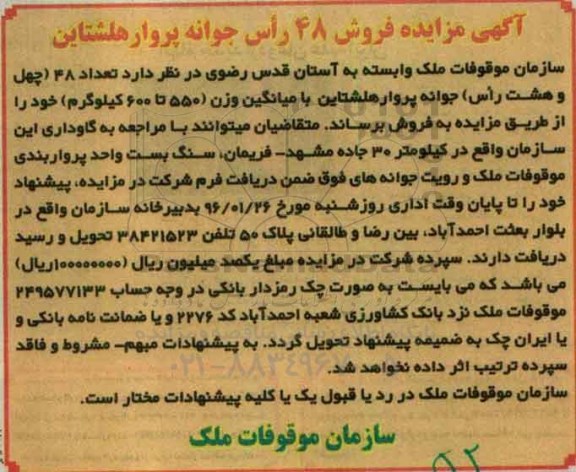 آگهی مزایده فروش ۴۸ رأس جوانه پروار هلشتاین
سازمان موقوفات ملک وابسته به آستان قدس رضوی در نظر دارد تعداد ۴۸ (چهل
و هشت رأس) جوانه پروار هلشتاین با میانگین وزن (۵۵۰ تا ۶۰۰ کیلوگرم) خود را
از طریق مزایده به فروش برساند. متقاضیان میتوانند با مراجعه به گاوداری این
سازمان واقع در کیلومتر ۳۰ جاده مشهد- فریمان، سنگ بست واحد پرواربندی
موقوفات ملک و رویت جوانه های فوق ضمن دریافت فرم شرکت در مزایده، پیشنهاد
خود را تا پایان وقت اداری روز شنبه مورخ ۹۶/۰۱/۲۶ بدبیرخانه سازمان واقع در
بلوار بعثت احمدآباد، بین رضا و طالقانی پلاک ۵۰ تلفن ۳۸۴۲۱۵۲۳ تحویل و رسید
دریافت دارند. سپرده شرکت در مزایده مبلغ یکصد میلیون ریال (۱۰۰۰۰۰۰۰۰ریال)
می باشد که می بایست به صورت چک رمزدار بانکی در وجه حساب ۲۴۹۵۷۷۱۳۳
موقوفات ملک نزد بانک کشاورزی شعبه احمدآباد کد ۲۲۷۶ و یا ضمانت نامه بانکی و
یا ایران چک به ضمیمه پیشنهاد تحویل گردد. به پیشنهادات مبهم- مشروط و فاقد
سپرده ترتیب اثر داده نخواهد شد.
سازمان موقوفات ملک در رد یا قبول یک یا کلیه پیشنهادات مختار است.
سازمان موقوفات ملک